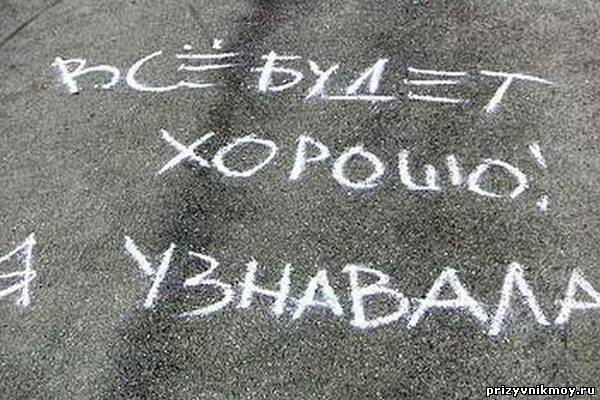 ВСЁ БУДЕТ
ХОРОШО!
Я УЗНАВАЛА
prizyvnikmoy.ru